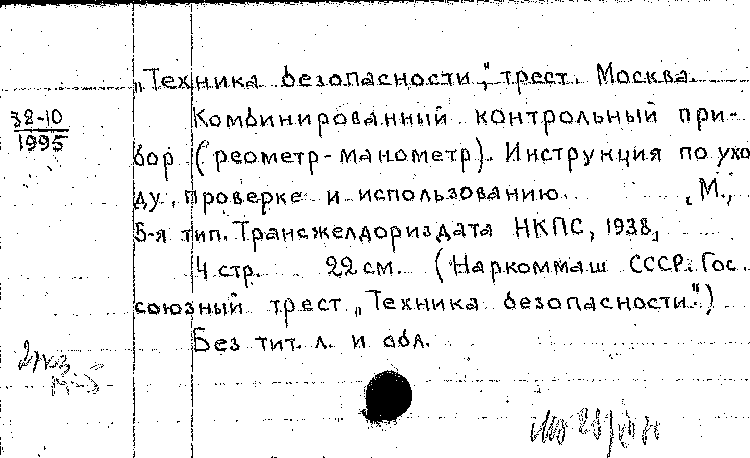 „Техника безопасности", трест. Москва.
38-10
1995
Комбинированный контрольный при-
бор (реометр-манометр). Инструкция по ухо
ду, проверке и использованию. М.,
5-я тип. Трансжелдориздата НКПС, 1938,
4 стр. 22 см. (Наркоммаш СССР. Гос.
союзный трест „Техника безопасности")
Без тит. л. и обл.
2 экз